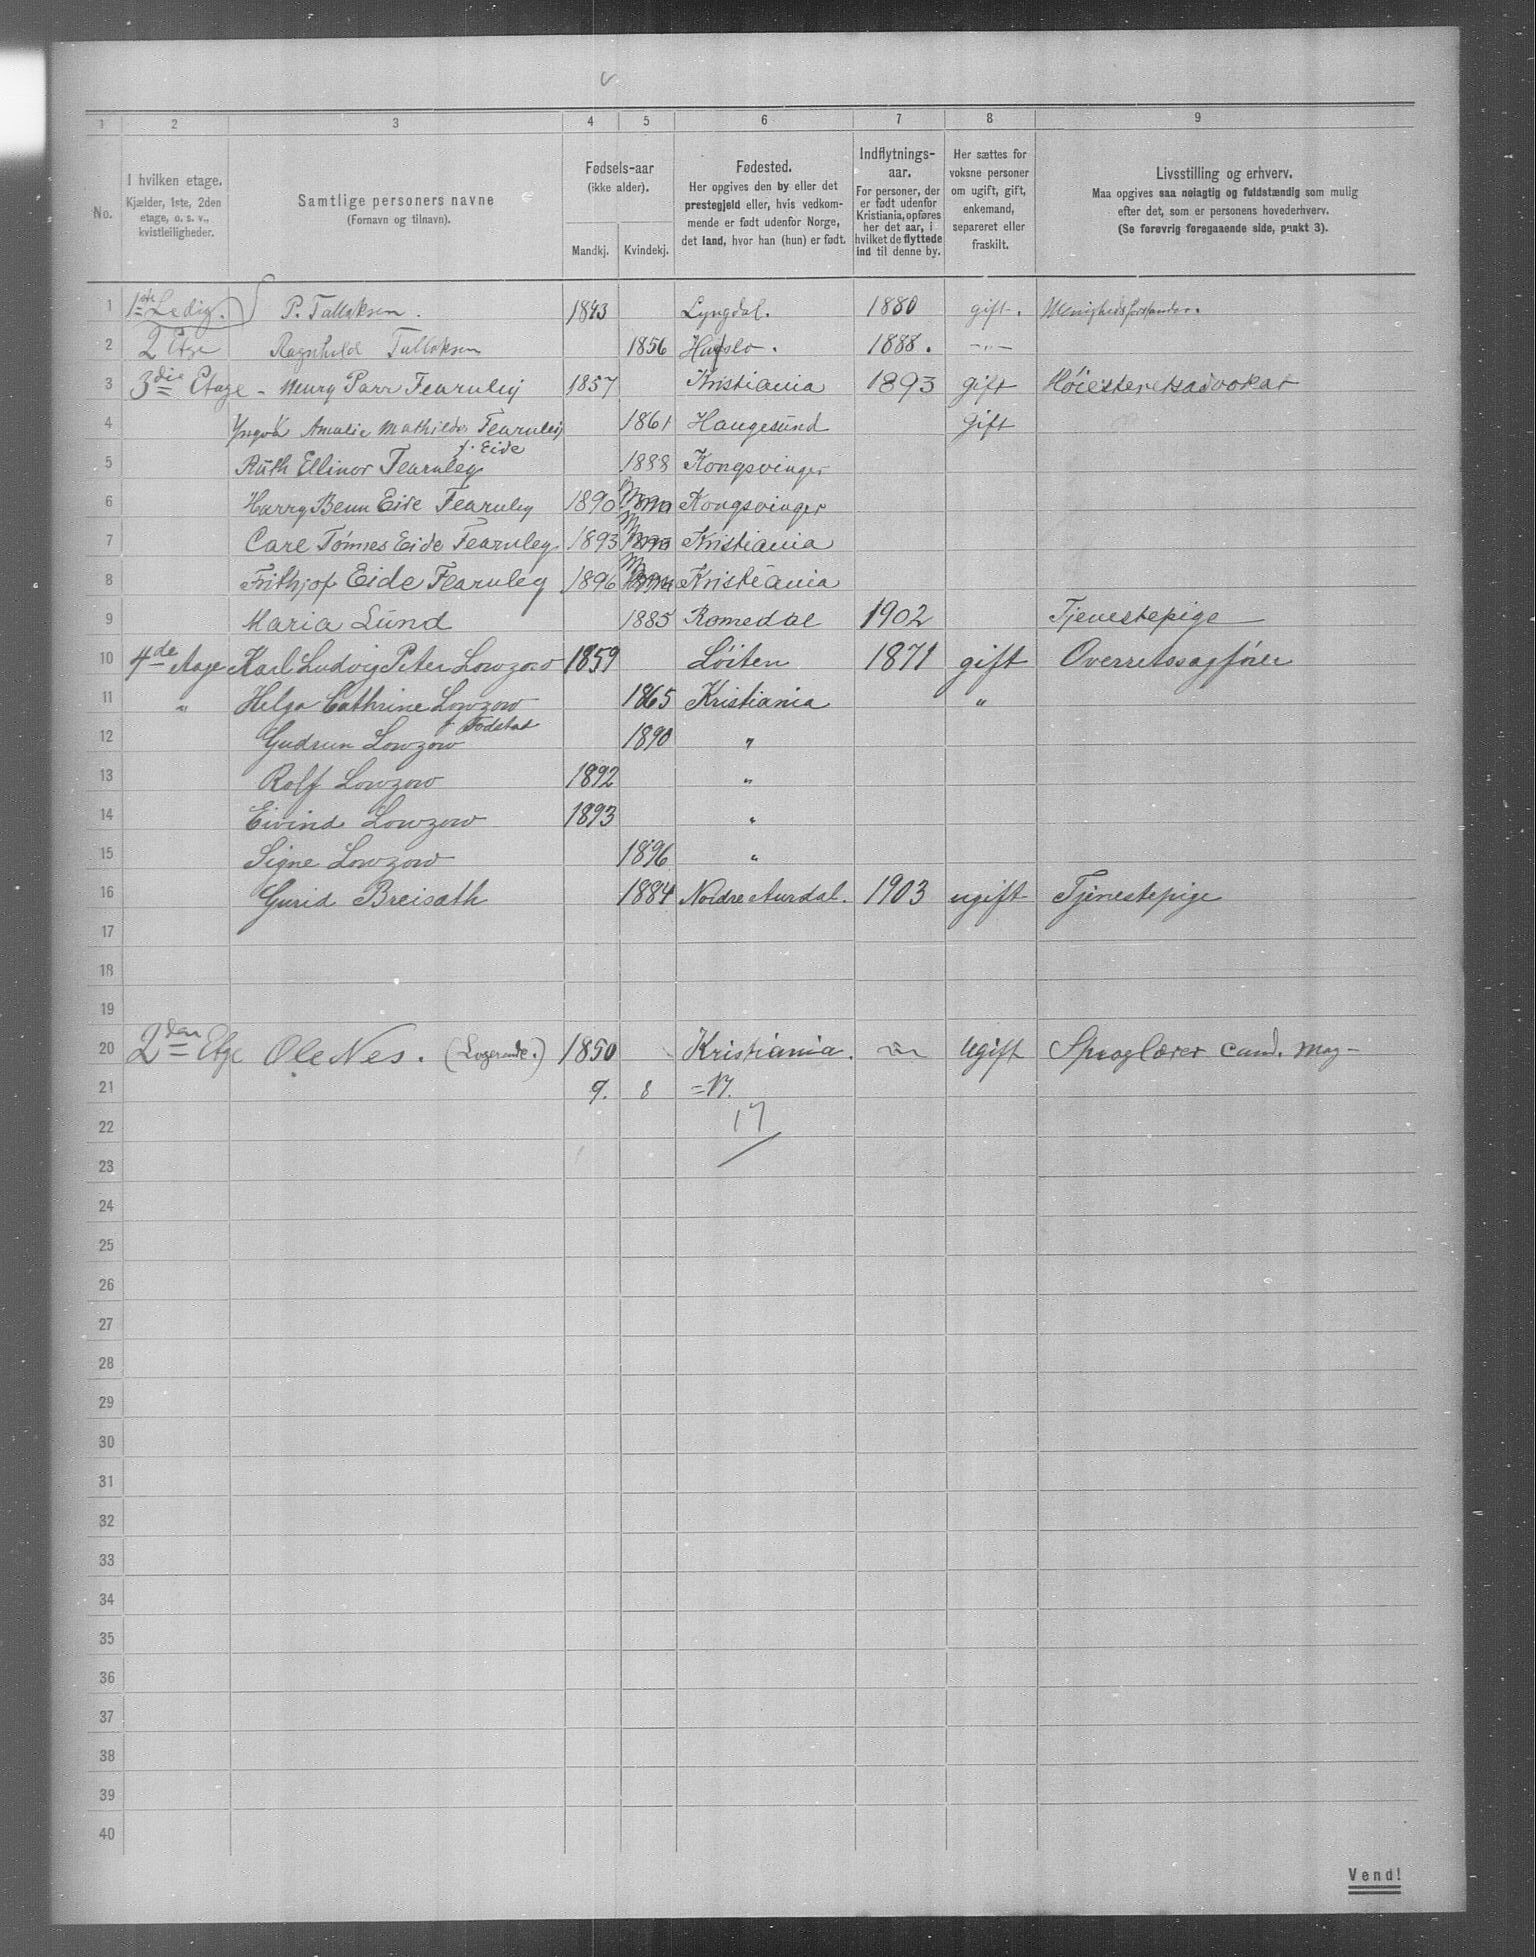 1 2 3 4 5 6 7 8 9
No.
I hvilken etage.
Kjælder, 1ste, 2den
etage, o. s. v.,
kvistleiligheder.
Samtlige personers navne
(Fornavn og tilnavn).
Fødsels-aar
(ikke alder).
Mandkj. Kvindekj.
Fødested.
Her opgives den by eller det
prestegjeld eller, hvis vedkom-
mende er født udenfor Norge,
det land, hvor han (hun) er født.
Indflytnings-
aar.
For personer, der
er født udenfor
Kristiania, opføres
her det aar, i
hvilket de flyttede
ind til denne by.
Her sættes for
voksne personer
om ugift, gift,
enkemand,
separeret eller
fraskilt.
Livsstilling og erhverv.
Maa opgives saa nøiagtig og fuldstændig som mulig
efter det, som er personens hovederhverv.
(Se forøvrig foregaaende side, punkt 3).
1 1ste Ledig. P. Tallaksen. 1843 Lyngdal. 1880 gift. Menighedsforstander.
2 2 Etge Ragnhild Tallaksen 1856 Hafslo. 1888. -"-
3 3die Etage - Henry Parr Fearnley 1857 Kristiania 1893 gift Høiesteretsadvokat
4 Yngva Amalie Mathilde Fearnley 1861 Haugesund gift
f. Eide
5 Ruth Ellinor Fearnley 1888 Kongsvinger
6 Harry Benn Eide Fearnley 1890 Kongsvinger
7 Carl Tønnes Eide Fearnley 1893 Kristiania
8 Frithjof Eide Fearnley 1896 Kristiania
9 Maria Lund 1885 Romedal 1902 Tjenestepige
10 4de Aage Karl Ludvig Peter Lowzow 1859 Løiten 1871 gift Overretssagfører
11 " Helga Cathrine Lowzow 1865 Kristiania "
f. Fodstad
12 Gudrun Lowzow 1890 "
13 Rolf Lowzow 1892 "
14 Eivind Lowzow 1893 "
15 Signe Lowzow 1896 "
16 Gurid Breisath 1884 Nordre Aurdal. 1903 ugift Tjenestepige
17
18
19
20 2den Etge Ole Nes. (Logerende.) 1850 Kristiania. Ugift Sproglærer cand. mag-
21 9. 8 =17.
22 17
23
24
25
26
27
28
29
30
31
32
33
34
35
36
37
38
39
40
Vend!